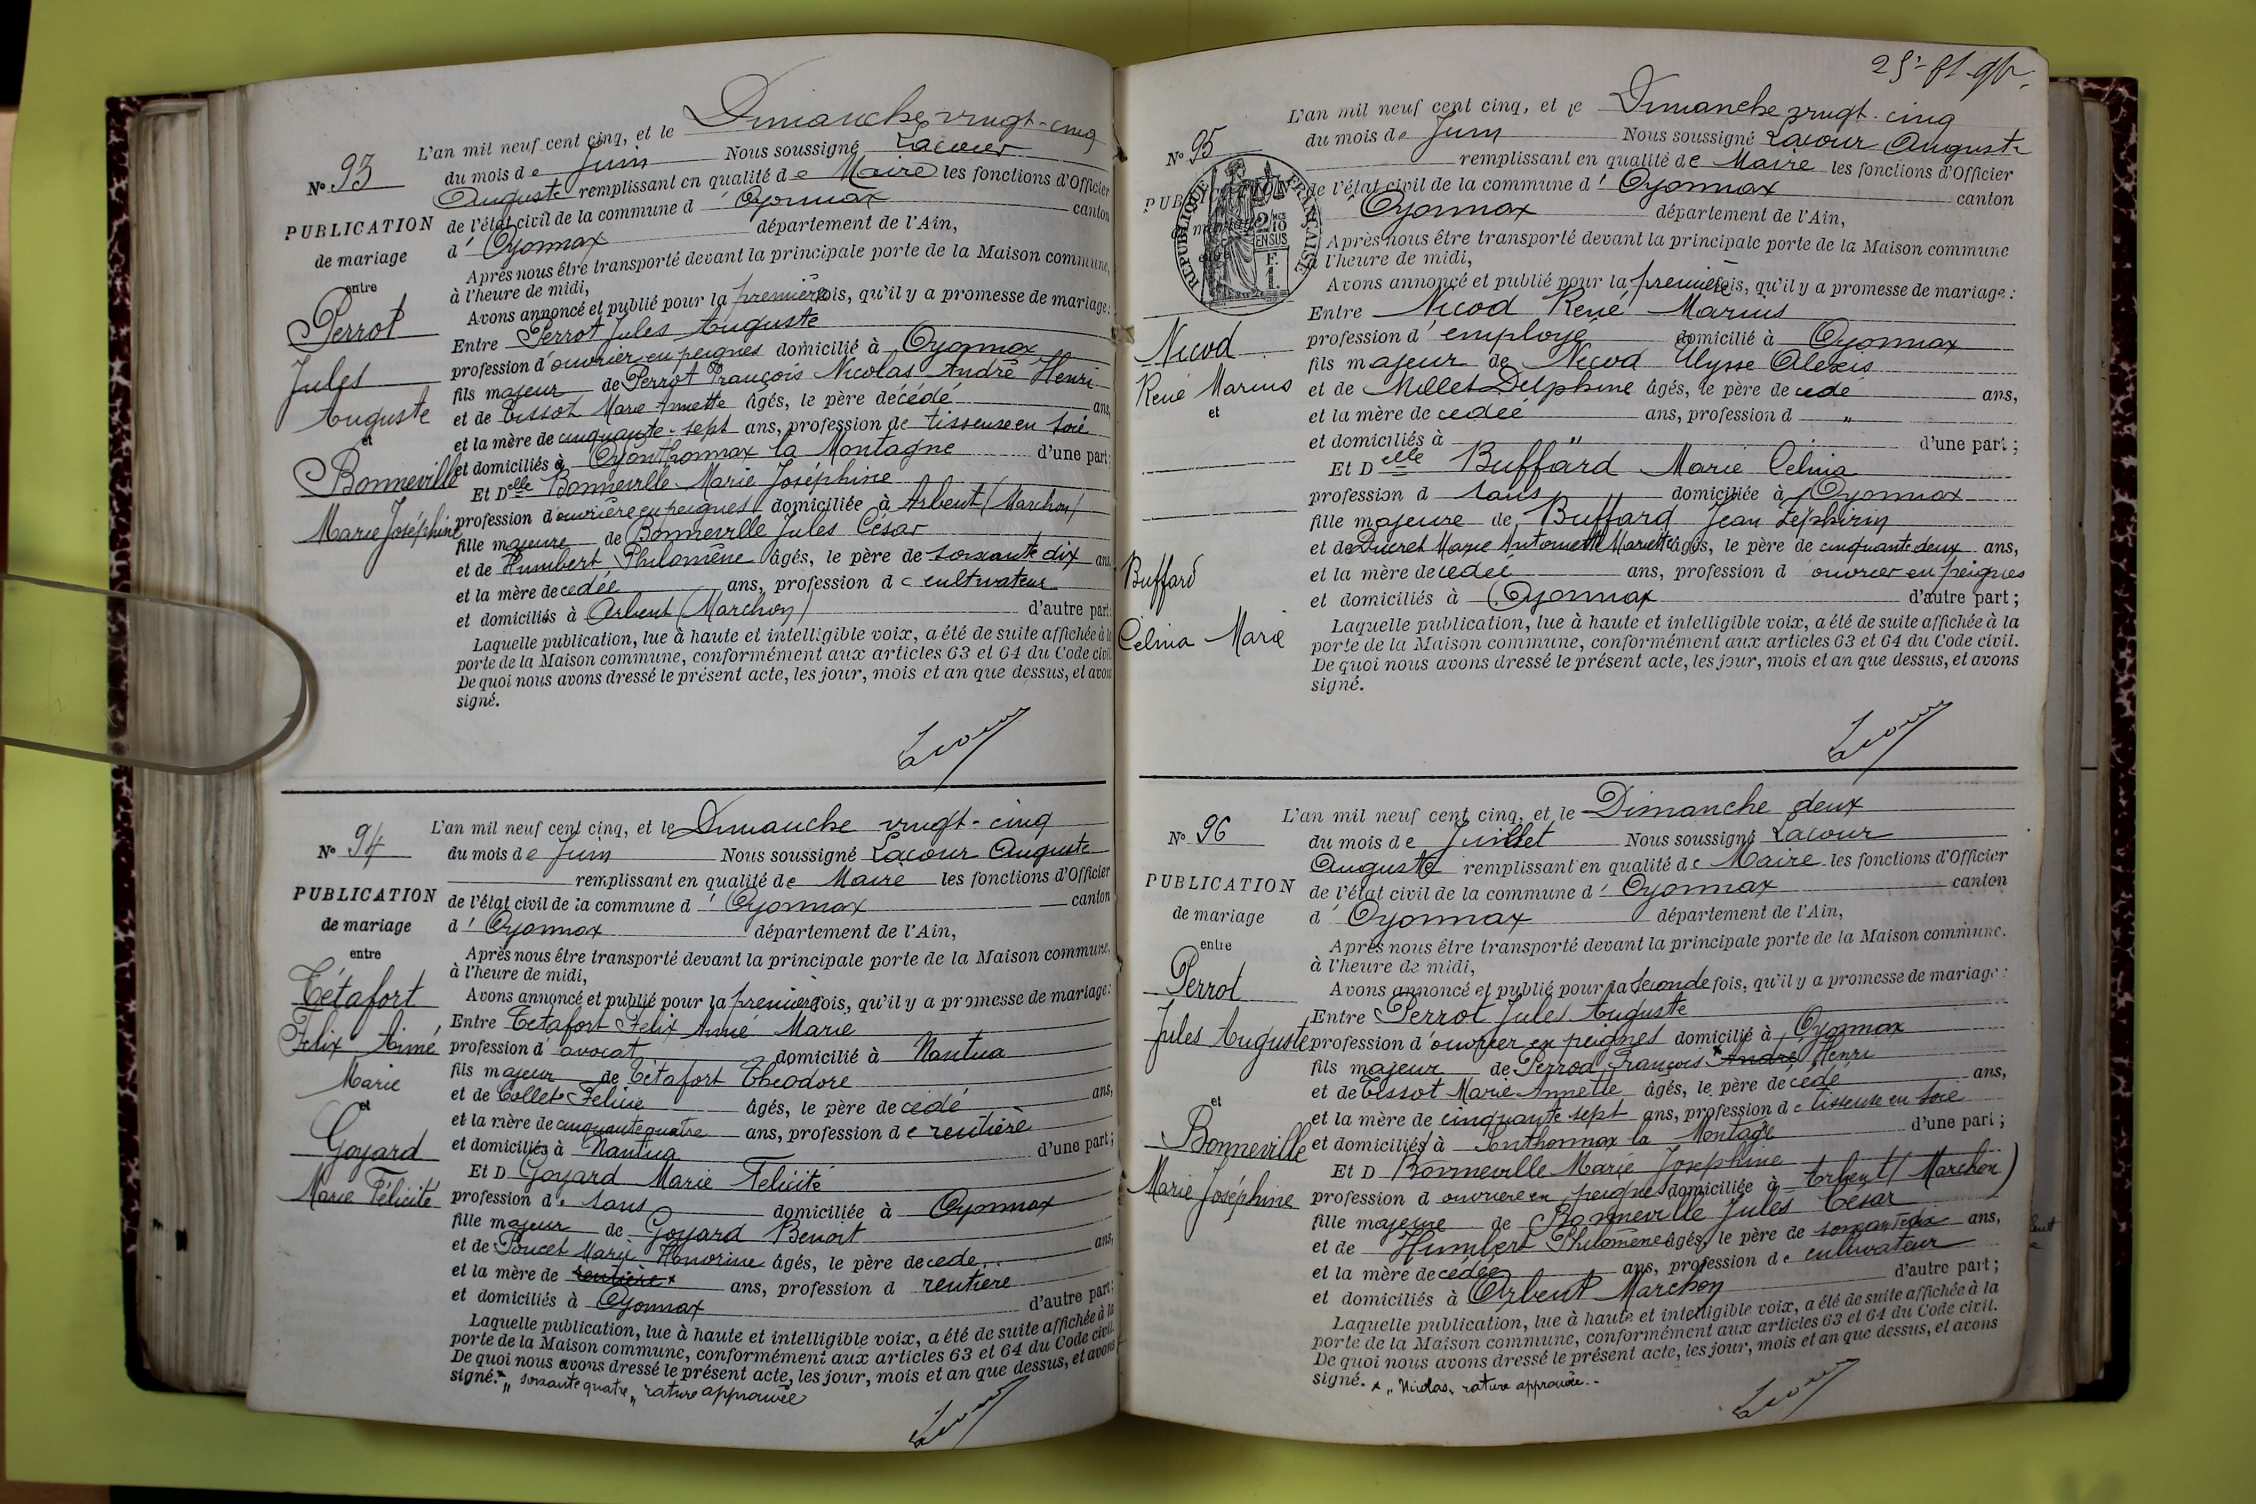 L'an mil neuf cent cinq, et le Dimanche vingt-cinq
N° 93
du mois de Juin Nous soussigné Lacour
Auguste remplissant en qualité de Maire les fonctions d'Officier
PUBLICATION
de l'état civil de la commune d' Oyonnax canton
d' Oyonnax département de l'Ain,
de mariage
Après nous être transporté devant la principale porte de la Maison commune,
à l'heure de midi,
entre
Avons annoncé et publié pour la première fois, qu'il y a promesse de mariage:
Perrot
Entre Perrot Jules Auguste
profession d'ouvrier en peignes domicilié à Oyonnax
Jules
fils majeur de Perrot François Nicolas André Henri
Auguste
et de Tissot Marie Annette âgés, le père décédé ans,
et
et la mère de cinquante-sept ans, profession de tisseuse en soie
et domiciliés à Oyonthonnax la Montagne d'une part;
Bonneville
Et Delle Bonneville Marie Joséphine
profession d'ouvrière en peignes domiciliée à Arbent (Marchon)
Marie Joséphine
fille majeure de Bonneville Jules César
et de Humbert Philomène âgés, le père de soixante dix ans,
et la mère decédée ans, profession de cultivateur
et domiciliés à Arbent (Marchon) d'autre part;
Laquelle publication, lue à haute et intelligible voix, a été de suite affichée à la
porte de la Maison commune, conformément aux articles 63 et 64 du Code civil.
De quoi nous avons dressé le présent acte, les jour, mois et an que dessus, et avons
signé.
Lacour
L'an mil neuf cent cinq, et le Dimanche vingt-cinq
N° 94
du mois de Juin Nous soussigné Lacour Auguste
remplissant en qualité de Maire les fonctions d'Officier
PUBLICATION
de l'état civil de la commune d' Oyonnax canton
de mariage
d' Oyonnax département de l'Ain,
entre
Après nous être transporté devant la principale porte de la Maison commune,
à l'heure de midi,
Tétafort
Avons annoncé et publié pour la première fois, qu'il y a promesse de mariage:
Entre Tetafort Felix Aimé Marie
Felix Aimé
profession d' avocat domicilié à Nantua
Marie
fils majeur de Tétafort Theodore
et
et de Collet Felicie âgés, le père decédé ans,
et la mère de cinquante quatre ans, profession de rentière
Goyard
et domiciliés à Nantua d'une part;
Et D Goyard Marie Felicité
Marie Félicité
profession de sans domiciliée à Oyonnax
fille majeur de Goyard Benoit
et de Poncet Marie Honorine âgés, le père decede ans,
et la mère de rentière x ans, profession d rentiere
et domiciliés à Oyonnax d'autre part;
Laquelle publication, lue à haute et intelligible voix, a été de suite affichée à la
porte de la Maison commune, conformément aux articles 63 et 64 du Code civil.
De quoi nous avons dressé le présent acte, les jour, mois et an que dessus, et avons
signé. x „ soixante quatre „ rature approuvée
Lacour
L'an mil neuf cent cinq, et le Dimanche vingt-cinq
N° 95
du mois de Juin Nous soussigné Lacour Auguste
remplissant en qualité de Maire les fonctions d'Officier
PUBLICATION
de l'état civil de la commune d' Oyonnax canton
de mariage
d' Oyonnax département de l'Ain,
entre
RÉPUBLIQUE FRANÇAISE
2/10 EN SUS
F. 1.
Après nous être transporté devant la principale porte de la Maison commune
à l'heure de midi,
Avons annoncé et publié pour la première fois, qu'il y a promesse de mariage:
Entre Nicod René Marius
Nicod
profession d'employé domicilié à Oyonnax
fils majeur de Nicod Ulysse Alexis
René Marius
et de Millet Delphine âgés, le père decedé ans,
et
et la mère decedée ans, profession d „
et domiciliés à „ d'une part;
Et Delle Buffard Marie Celina
profession d sans domiciliée à Oyonnax
fille majeure de Buffard Jean Zéphirin
et de Ducret Marie Antoinette Mariette âgés, le père de cinquante deux ans,
Buffard
et la mère decédée ans, profession d ouvrier en peignes
et domiciliés à Oyonnax d'autre part;
Celina Marie
Laquelle publication, lue à haute et intelligible voix, a été de suite affichée à la
porte de la Maison commune, conformément aux articles 63 et 64 du Code civil.
De quoi nous avons dressé le présent acte, les jour, mois et an que dessus, et avons
signé.
Lacour
L'an mil neuf cent cinq, et le Dimanche deux
N° 96
du mois de Juillet Nous soussigné Lacour
Auguste remplissant en qualité de Maire les fonctions d'Officier
PUBLICATION
de l'état civil de la commune d' Oyonnax canton
de mariage
d' Oyonnax département de l'Ain,
entre
Après nous être transporté devant la principale porte de la Maison commune.
à l'heure de midi,
Perrot
Avons annoncé et publié pour la seconde fois, qu'il y a promesse de mariage:
Entre Perrot Jules Auguste
Jules Auguste
profession d'ouvrier en peignes domicilié à Oyonnax
fils majeur de Perrod François x André Henri
et
et de Tissot Marie Annette âgés, le père decédé ans,
et la mère de cinquante sept ans, profession de tisseuse en soie
Bonneville
et domiciliés à Onthonnax la Montagne d'une part;
Et D Bonneville Marie Josephine
Marie Joséphine
profession d ouvriere en peigne domiciliée à Arbent (Marchon)
fille majeure de Bonneville Jules César
et de Humbert Philomène âgés, le père de soixante dix ans,
et la mère decédée ans, profession de cultivateur
et domiciliés à Arbent Marchon d'autre part;
Laquelle publication, lue à haute et intelligible voix, a été de suite affichée à la
porte de la Maison commune, conformément aux articles 63 et 64 du Code civil.
De quoi nous avons dressé le présent acte, les jour, mois et an que dessus, et avons
signé. x „ Nicolas, rature approuvée.
Lacour